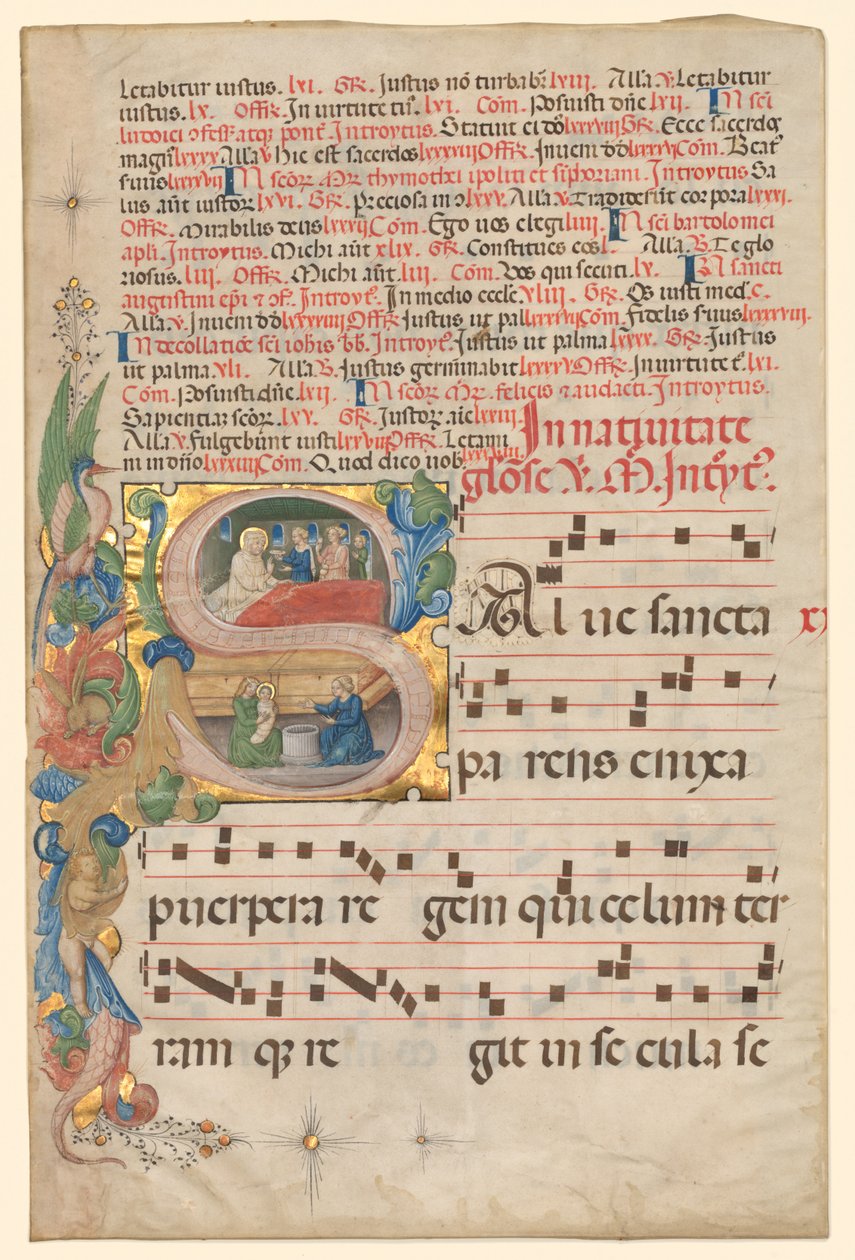 Letabitur iustus. lxi. GR. Iustus nō turbabr̄ lviii. Alła. V. Letabitur
iustus. lx. OffR. In uirtute tu. lvi. Com. Posuisti dn̄e lxii. In sc̄i
ludoici ꝯfess. atqꝫ pont. Introytus. Statuit ei dō lxxxviii GR. Ecce sacerdos
magn⁹ lxxxx Alła V hic est sacerdos lxxxxiii OffR. Inueni dō lxxxvi Com. Beat⁹
seruus lxxxvii In sc̄oꝝ Mr̄ thymothei ipoliti et simphoriani. Introytus Sa
lus aūt iustoꝝ lxvi. GR. Preciosa in ꝯ lxxv. Alła V. Tradiderūt corpora lxxxi.
OffR. Mirabilis deus lxxxii Com. Ego uos elegi liiii. In sc̄i bartolomei
apłi. Introytus. Michi aūt xlix. GR. Constitues eos l. Alła V. Te glo
riosus. liii. OffR. Michi aūt. liii. Com. Vos qui secuti. lv. In sancti
augustini ep̄i ⁊ ꝯf. Introyt⁹. In medio eccłe xliii. GR. Os iusti med. c.
Alła V. Inueni dō lxxxxiiii OffR Iustus ut pal lxxxvi Com. fidelis seruus lxxxxviii.
In decollatiōe sc̄i ioh̄is bb̄. Introyt⁹. Iustus ut palma lxxxx. GR. Iustus
ut palma. vli. Alła V. Iustus germinabit lxxxxv OffR. In uirtute t. lxi.
Com. Posuisti dn̄e. lxii. In sc̄oꝝ Mr̄. felicis ⁊ audacti. Introytus.
Sapientiaꝫ sc̄oꝝ. lxv. GR. Iustoꝝ aīe lxxiii.
Alła V. fulgebunt iusti lxxvii OffR. Letami
ni in dn̄o lxxxiii Com. Quod dico uob. lxxxiiii.
In natiuitate
glōse V. M. Intӯt⁹.
SAlue sancta xx
parens enixa
puerpera re gem qui celum ter
ram qꝫ re git in se cula se